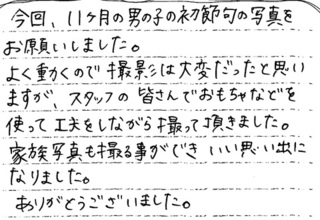 今回、11ヶ月の男の子の初節句の写真を
お願いしました。
よく動かくので撮影は大変だったと思い
ますが、スタッフの皆さんでおもちゃなどを
使って工夫をしながら撮って頂きました。
家族写真も撮る事ができ いい思い出に
なりました。
ありがとうございました。